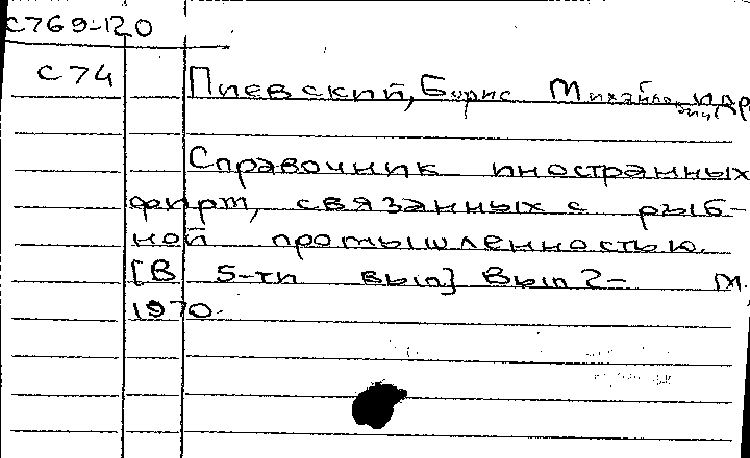 С769-120
С74
Пиевский, Борис Михайлович, и др
Справочник иностранных
фирм, связанных с рыб-
ной промышленностью.
[В 5-ти вып] Вып 2- М,
1970.